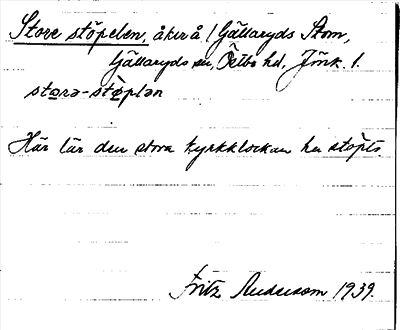 Store stöpelen, åker å Gällaryds Stom,
Gällaryds sn, Östbo hd, Jönk. l.
stora-stöplan
Här lär den stora kyrkklockan ha stöpts.
Fritz Andersson 1939.